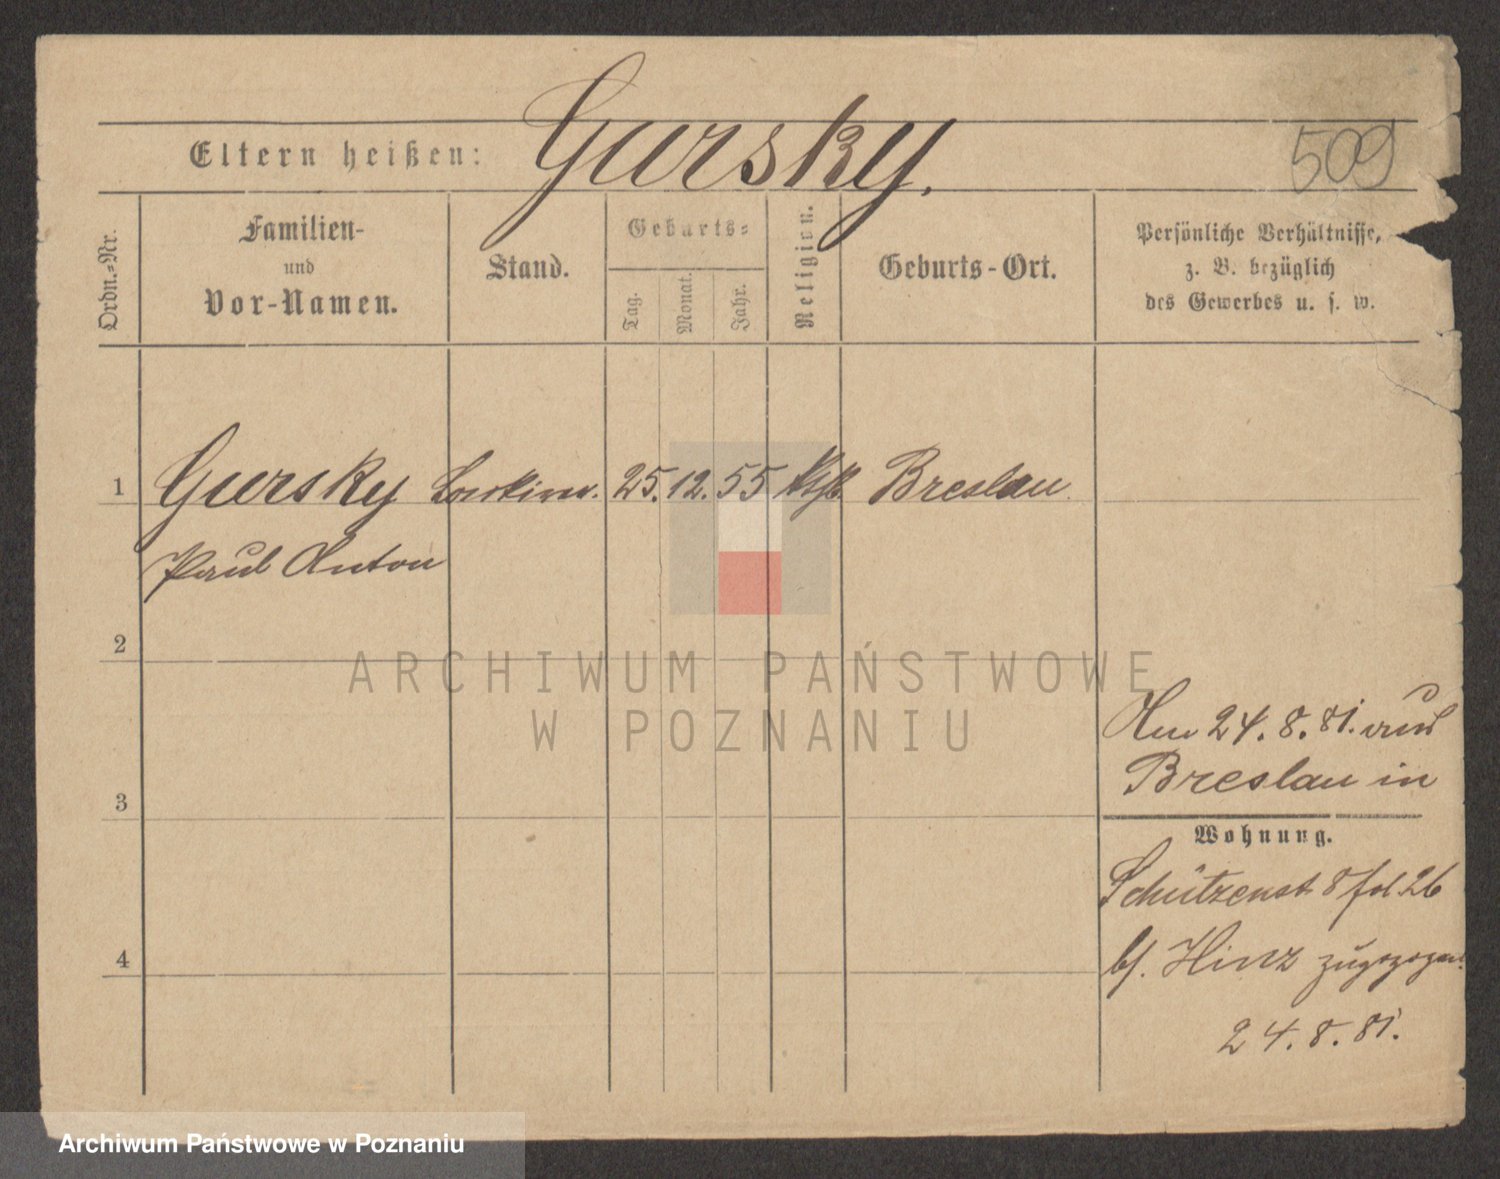 509
Eltern heißen: Gursky.
Ordn.=Nr.
Familien-
und
Vor-Namen.
Stand.
Geburts=
Tag.
Monat.
Jahr.
Religion.
Geburts-Ort.
Persönliche Verhältnisse,
z. B. bezüglich
des Gewerbes u. s. w.
1 Gursky 25. 12. 55 Breslau
Paul Anton
2
ARCHIWUM PAŃSTWOWE
W POZNANIU
Am 24. 8. 81. aus
Breslau in
3
Wohnung.
Schützenst. 8 fol. 26
4
bf. Hinz zugezogen.
24. 8. 81.
Archiwum Państwowe w Poznaniu